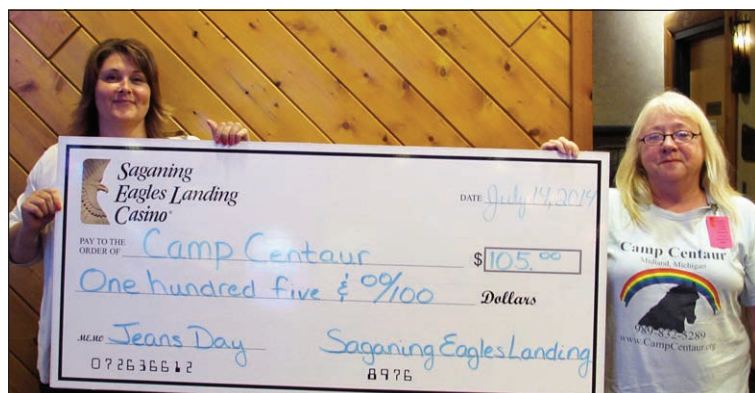 Saganing
Eagles Landing
Casino®
DATE July 14, 2014
PAY TO THE
ORDER OF Camp Centaur $ 105.00
One hundred five & 00/100 Dollars
MEMO Jeans Day Saganing Eagles Landing
072636612 8976
Camp Centaur
Midland, Michigan
989-832-5289
www.CampCentaur.org